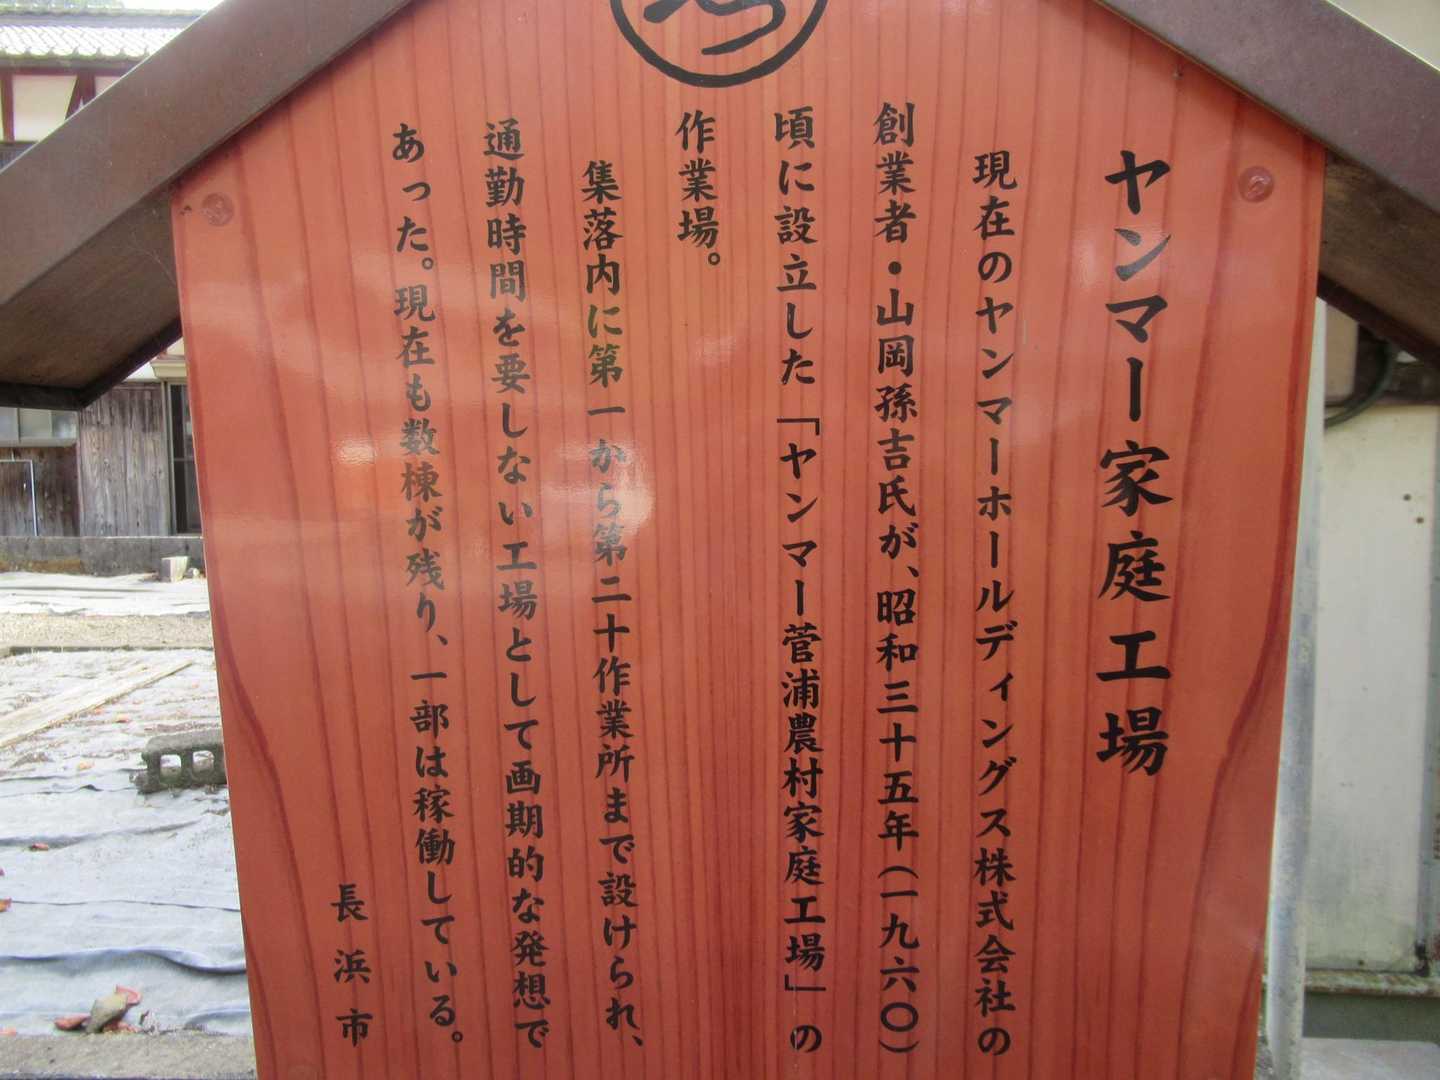 ヤンマー家庭工場
現在のヤンマーホールディングス株式会社の
創業者・山岡孫吉氏が、昭和三十五年(一九六〇)
頃に設立した「ヤンマー菅浦農村家庭工場」の
作業場。
集落内に第一から第二十作業所まで設けられ、
通勤時間を要しない工場として画期的な発想で
あった。現在も数棟が残り、一部は稼働している。
長浜市